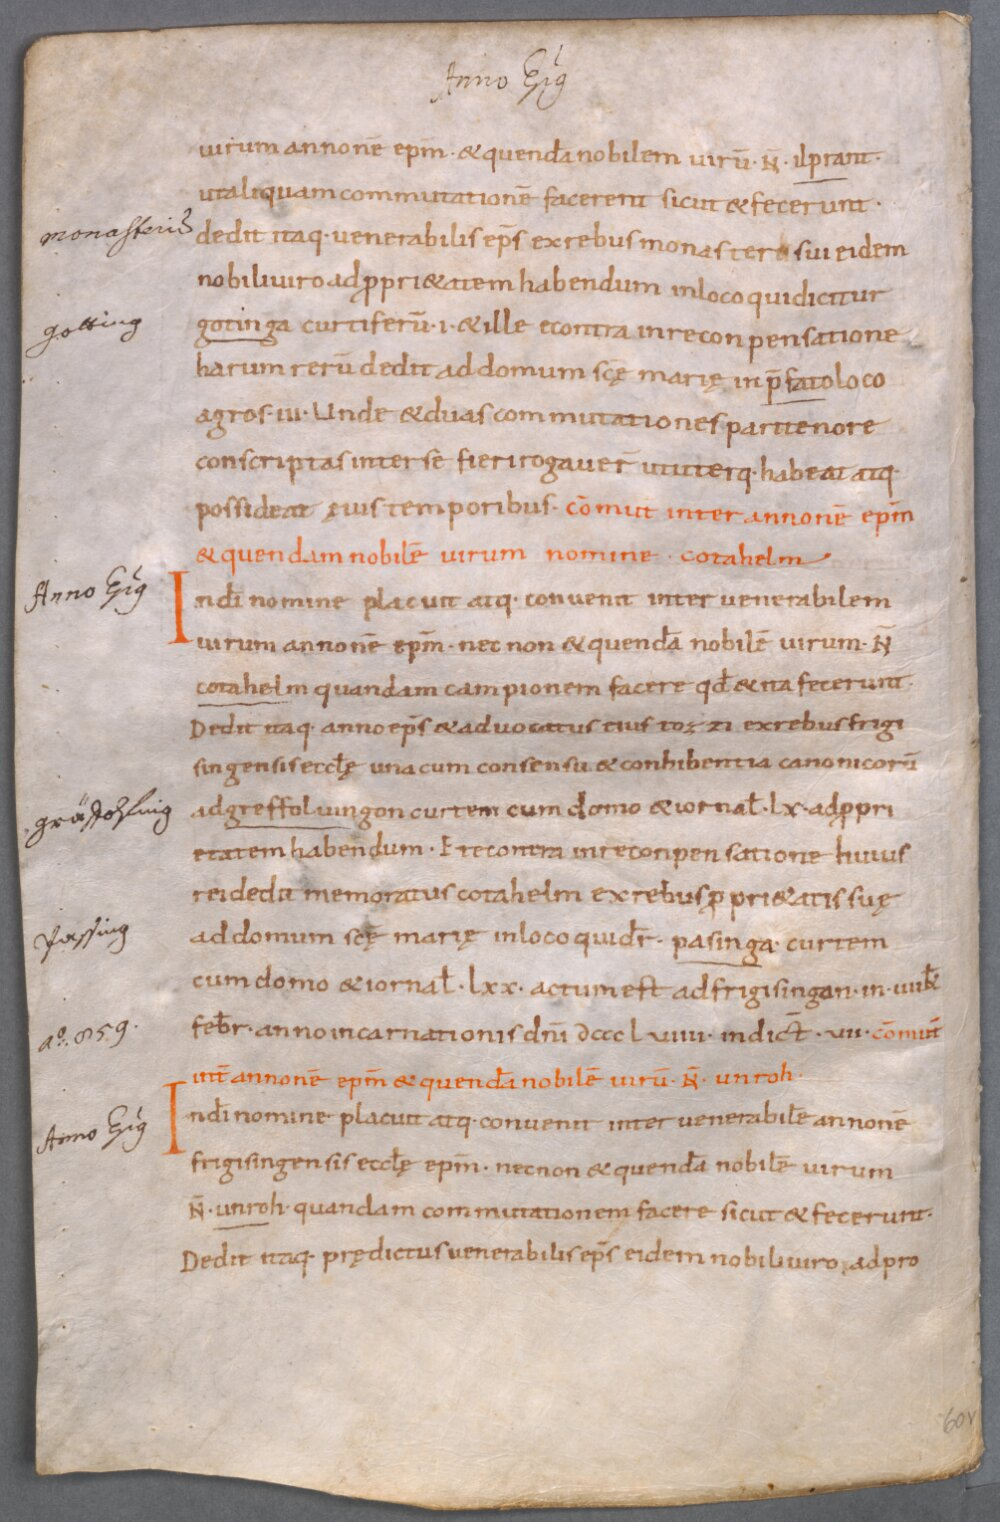 Anno Ep̄s
uirum annonē ep̄m · & quendā nobilem uirū · N̄ · ilprant ·
ut aliquam commutationē facerent sicut & fecerunt ·
monasterii
dedit itaq · uenerabilis ep̄s ex rebus monasterii sui eidem
nobili uiro ad ꝓpri&atem habendum in loco qui dicitur
gotting
gotinga curtiferū · i · & ille econtra in reconpensatione
harum rerū dedit ad domum scę marię in p̄fato loco
agros · iii · Unde & duas commutationes pari tenore
conscriptas inter se fieri rogauer̄ ut uterq · habeat atq ·
possideat ęuis temporibus · cōmut inter annonē ep̄m
& quendam nobilē uirum nomine · cotahelm
In dī nomine placuit atq · conuenit inter uenerabilem
uirum annonē ep̄m · nec non & quendā nobilē uirum · N̄
cotahelm quandam campionem facere qđ & ita fecerunt ·
Dedit itaq · anno ep̄s & aduocatus eius tozzi ex rebus frigi
singensis eccłę una cum consensu & conhibentia canonicorū
gräffolfing
ad greffoluingon curtem cum domo & iornał · lx · ad ꝓpri
etatem habendum · E recontra in reconpensatione huius
rei dedit memoratus cotahelm ex rebus ꝓpri&atis suę
passing
ad domum scę marię in loco qui dr̄ · pasinga · curtem
cum domo & iornał · lxx · actum est ad frigisingan · in · uiiii kł
a.º 859.
feb̄r · anno incarnationis dn̄i dccclviiii · indict̄ · vii · cōmut̄
int̄ annonē ep̄m & quendā nobilē uirū · N̄ · unroh ·
In dī nomine placuit atq · conuenit inter uenerabilē annonē
frigisingensis eccłę ep̄m · nec non & quendā nobilē uirum
N̄ · unroh · quandam commutationem facere sicut & fecerunt ·
Dedit itaq · prędictus uenerabilis ep̄s eidem nobili uiro, ad pro
60v